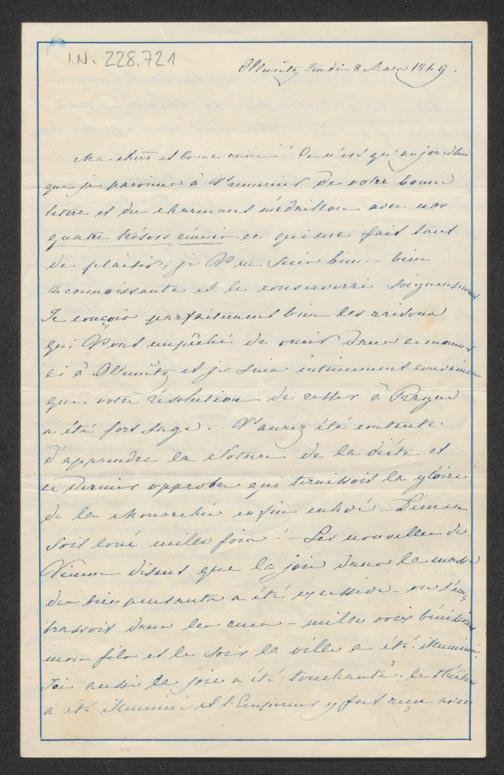 I.N. 228.721
Ollmütz Jeudi 8 Mars 1849.
Ma chère et bonne amie! Ce n'est qu'aujourdhui
que je parviens à V. remercier de votre bonne
lettre et du charmant médaillon avec nos
quatre trésors réunis ce qui me fait tant
de plaisir, je V. en suis bien - bien
reconnoissante et le conserverai soigneusement
Je conçois parfaitement bien les raisons
qui V. ont empêché de venir dans ce moment
ci à Ollmütz et je suis intimement convaincue
que votre résolution de rester à Prague
a été fort sage. V. aurez été contente
d'apprendre la cloture de la diète et
ce dernier opprobre qui ternissoit la gloire
de la monarchie enfin enlevé - Dieu en
soit loué mille fois! - Les nouvelles de
Vienne disent que la joie dans la masse
des bien pensants a été excessive - on s'em
brassoit dans les rues - mille voix bénissoient
mon fils et le soir la ville a été illuminée.
Ici aussi la joie a été touchante. le théâtre
a été illuminé et l'Empereur y fut reçu avec